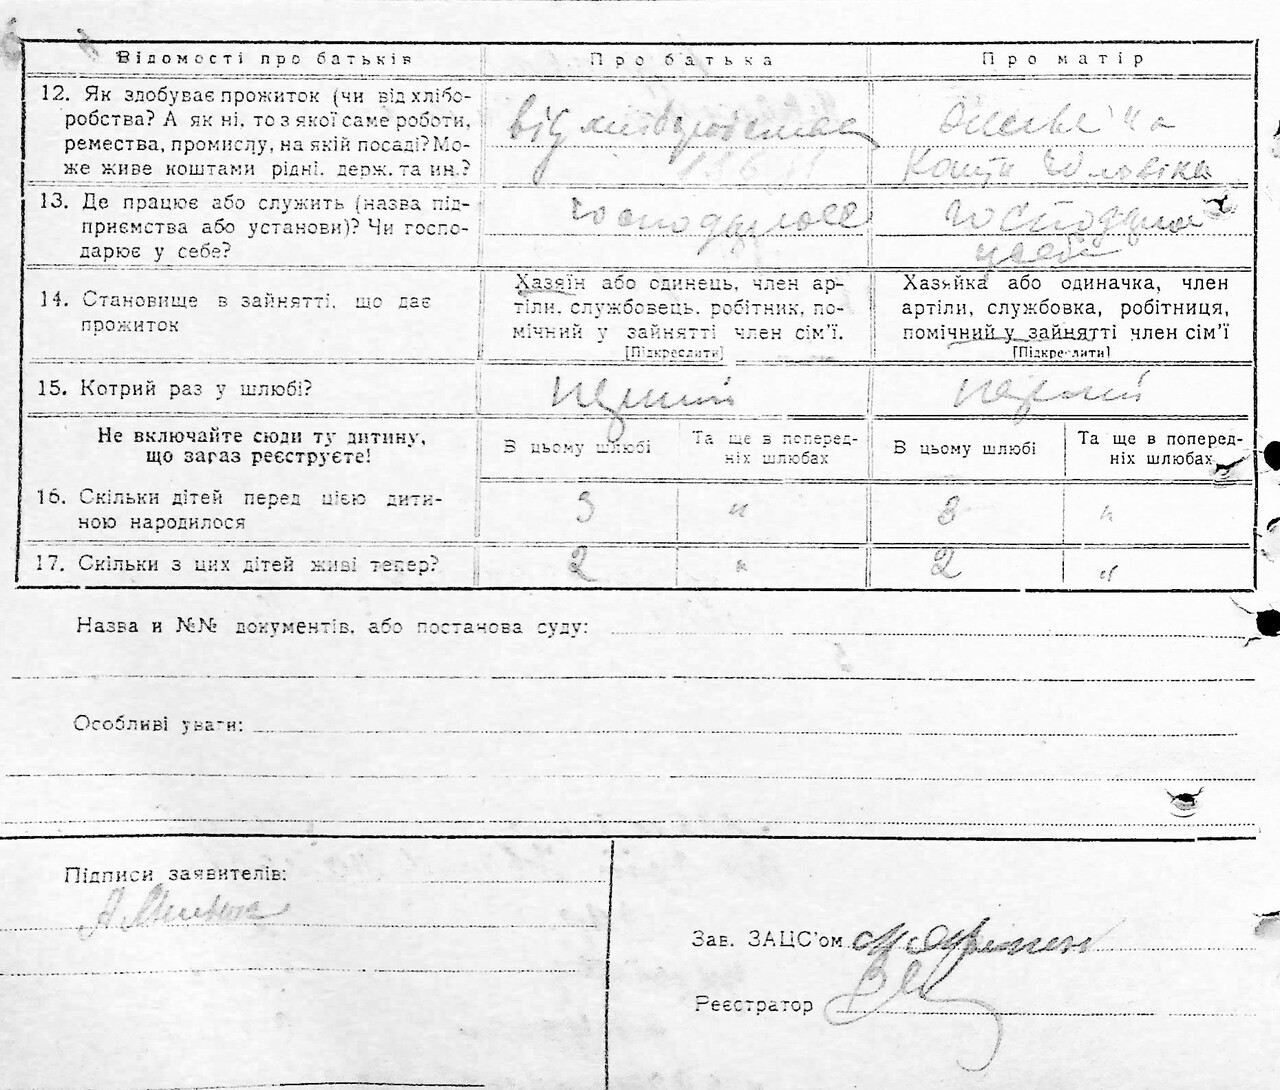 Відомості про батьків
Про батька
Про матір
12. Як здобуває прожиток (чи від хлібо-
робства? А як ні, то з якої саме роботи,
ремества, промислу, на якій посаді? Мо-
же живе коштами рідні, держ. та ин.?
від хліборобства
живе на
кошти чоловіка
13. Де працює або служить (назва під-
приємства або установи)? Чи госпо-
дарює у себе?
господарює
господарює
у себе
14. Становище в зайнятті, що дає
прожиток
Хазяїн або одинець, член ар-
тіли, службовець, робітник, по-
мічний у зайнятті член сім'ї.
[Підкреслити]
Хазяйка або одиначка, член
артіли, службовка, робітниця,
помічний у зайнятті член сім'ї
[Підкреслити]
15. Котрий раз у шлюбі?
перший
перший
Не включайте сюди ту дитину,
що зараз реєструєте!
В цьому шлюбі
Та ще в поперед-
ніх шлюбах
В цьому шлюбі
Та ще в поперед-
ніх шлюбах
16. Скільки дітей перед цією дити-
ною народилося
3 " 3 "
17. Скільки з цих дітей живі тепер?
2 " 2 "
Назва и №№ документів, або постанова суду:
Особливі уваги:
Підписи заявителів:
Зав. ЗАЦС'ом
Реєстратор